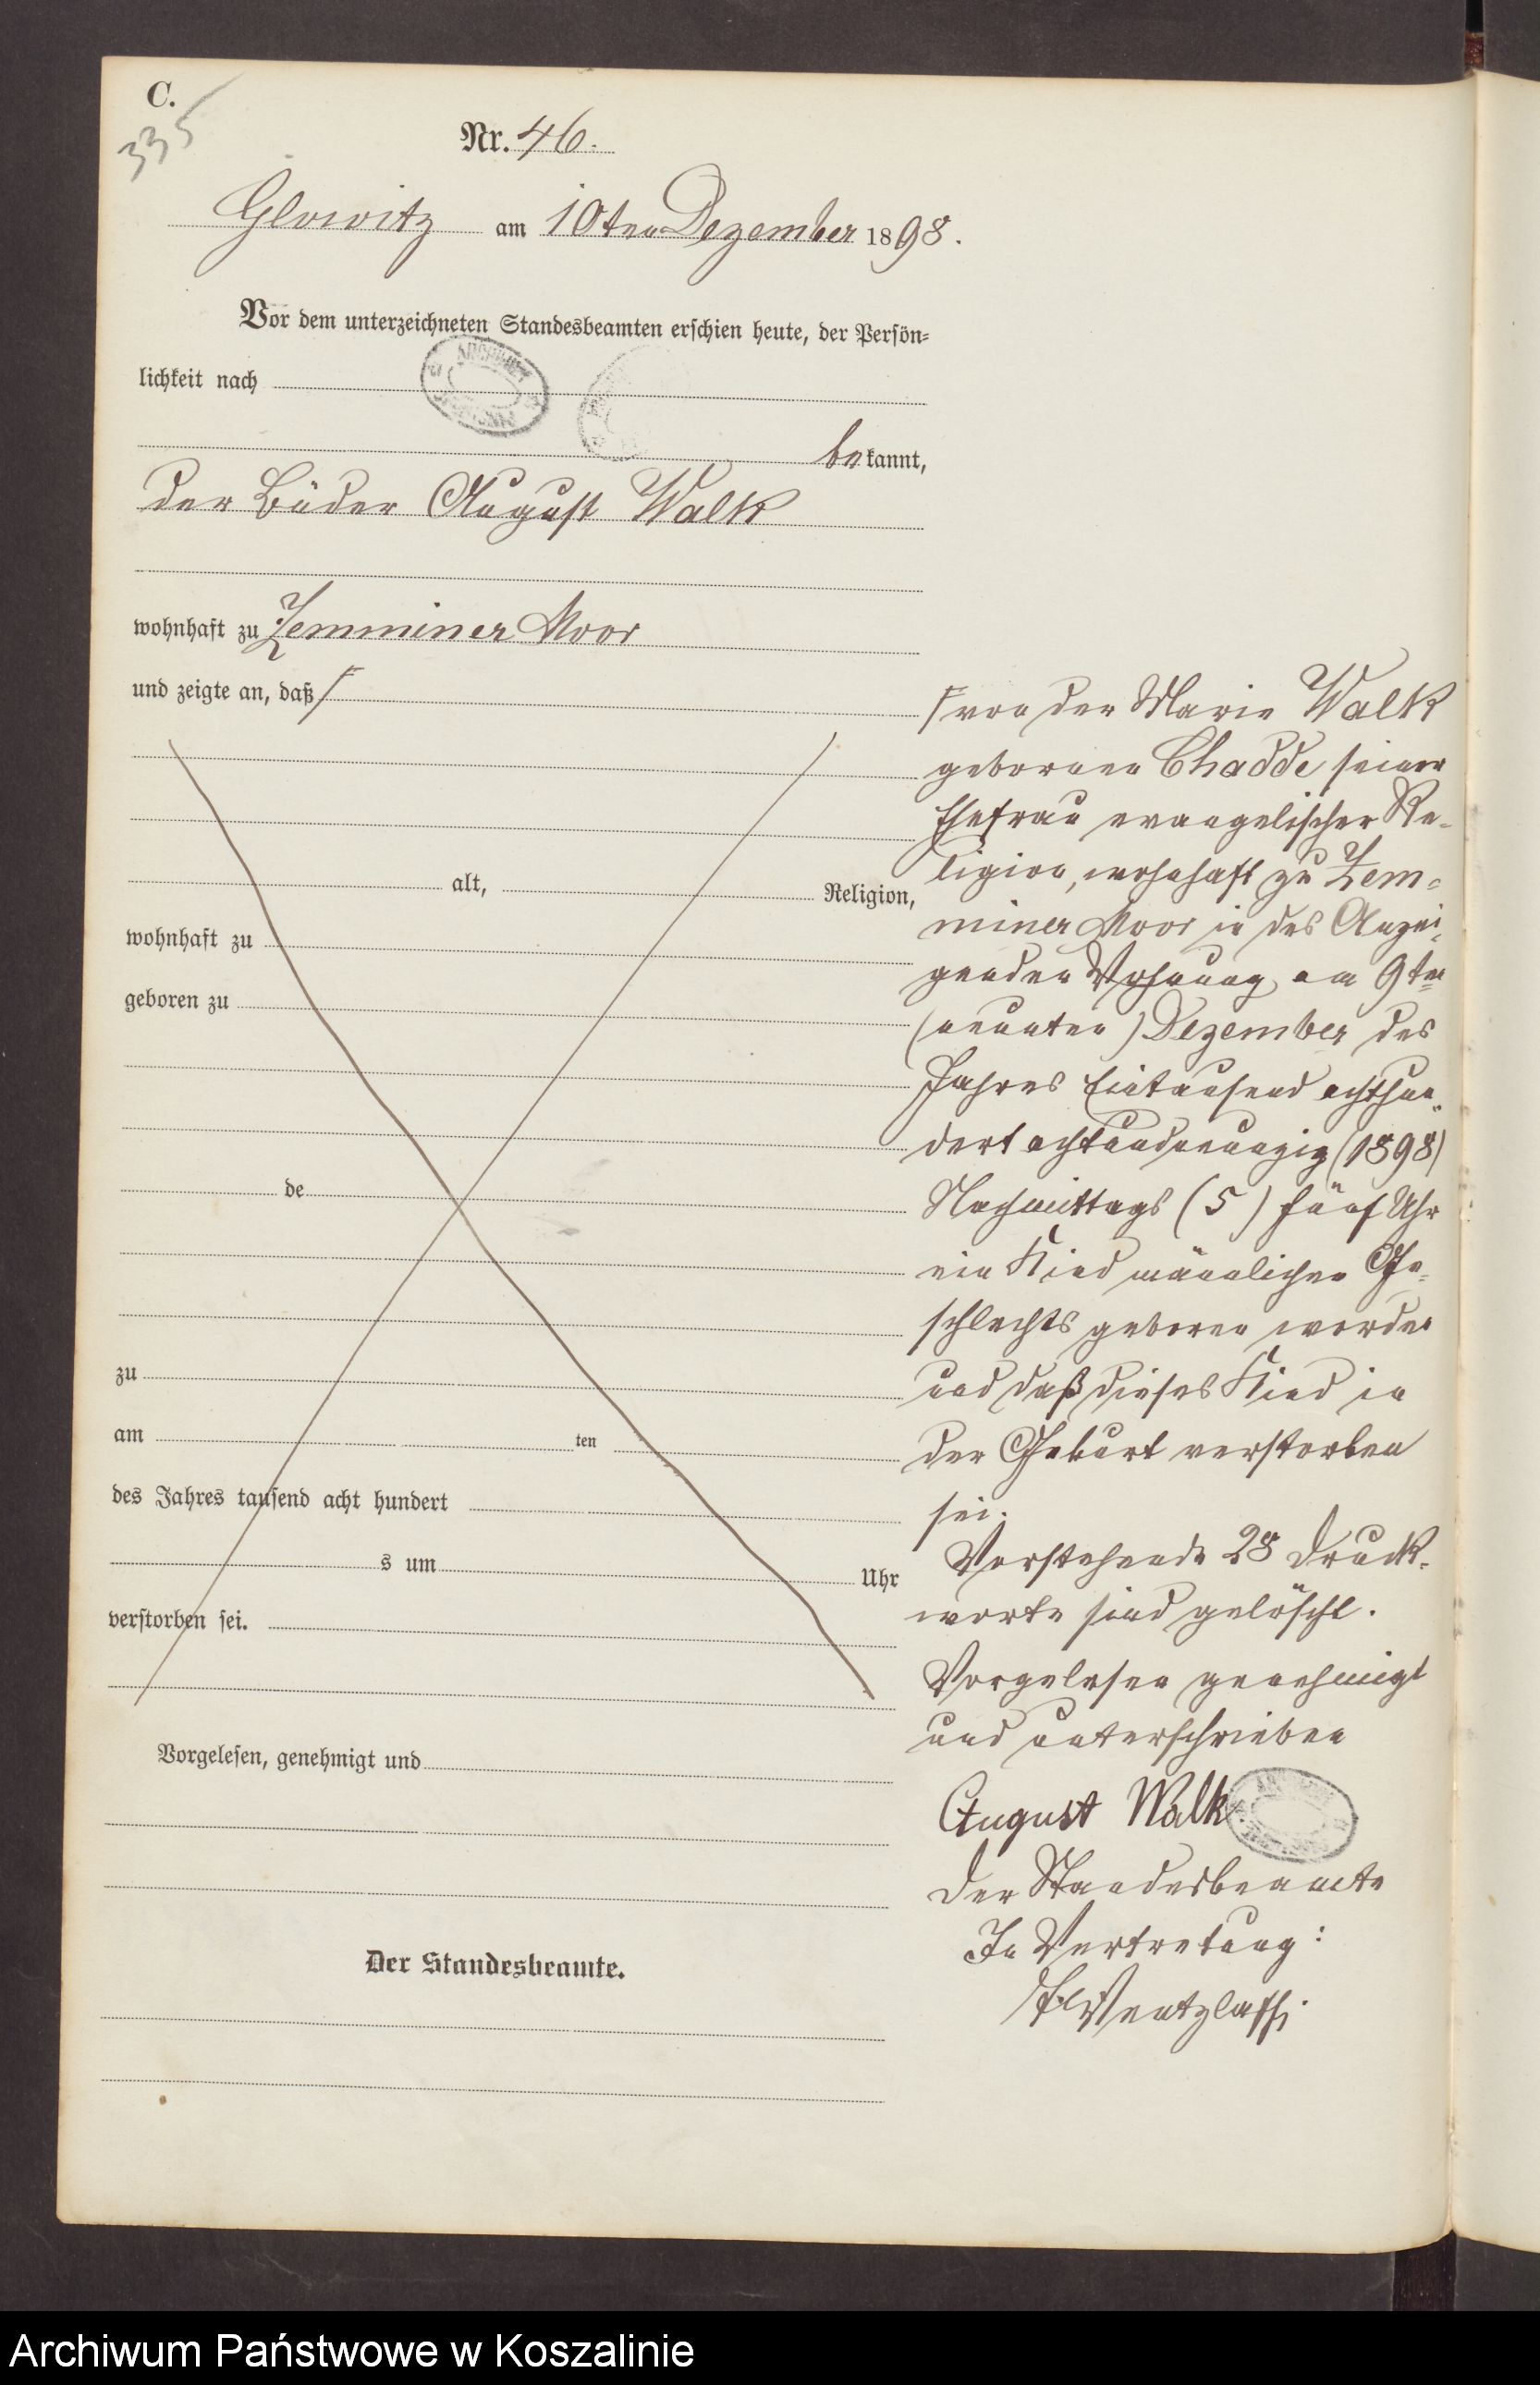 C.
335
Nr. 46.
Glowitz am 10ten Dezember 1898.
Vor dem unterzeichneten Standesbeamten erschien heute, der Persön=
lichkeit nach
bekannt,
der Büdner August Walk
wohnhaft zu Zemminer Moor
und zeigte an, daß
alt, Religion,
wohnhaft zu
geboren zu
de
zu
am ten
des Jahres tausend acht hundert
s um Uhr
verstorben sei.
Vorgelesen, genehmigt und
Der Standesbeamte.
von der Marie Walk
geborenen Chadde seiner
Ehefrau evangelischer Re-
ligion, wohnhaft zu Zem=
miner Moor in des Anzei-
genden Wohnung am 9ten
(neunten) Dezember des
Jahres Eintausend achthun-
dert achtundneunzig (1898)
Nachmittags (5) fünf Uhr
ein Kind männlichen Ge-
schlechts geboren worden
und daß dieses Kind in
der Geburt verstorben
sei.
Vorstehende 28 Druck-
worte sind gelöscht.
Vorgelesen genehmigt
und unterschrieben
August Walk
Der Standesbeamte
In Vertretung:
Wentzlaff.
Archiwum Państwowe w Koszalinie